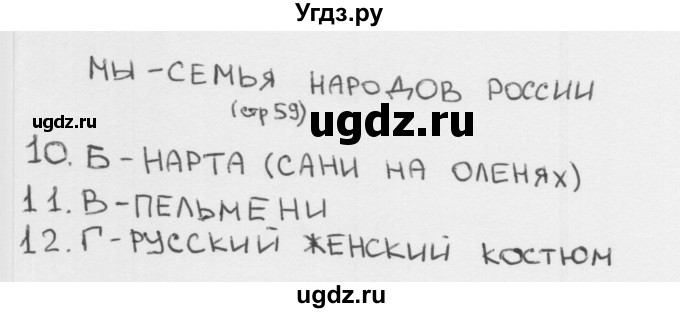 Угдз.ру
МЫ - СЕМЬЯ НАРОДОВ РОССИИ
(стр 59)
ugdz.ru ugdz.ru ugdz.ru
10. Б - НАРТА (САНИ НА ОЛЕНЯХ)
11. В - ПЕЛЬМЕНИ
12. Г - РУССКИЙ ЖЕНСКИЙ КОСТЮМ
ugdz.ru ugdz.ru